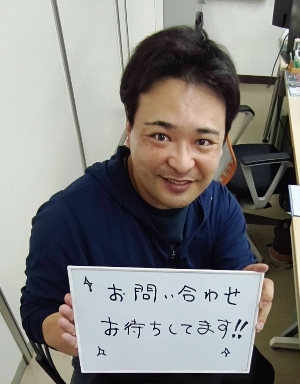 お問い合わせ
お待ちしてます!!